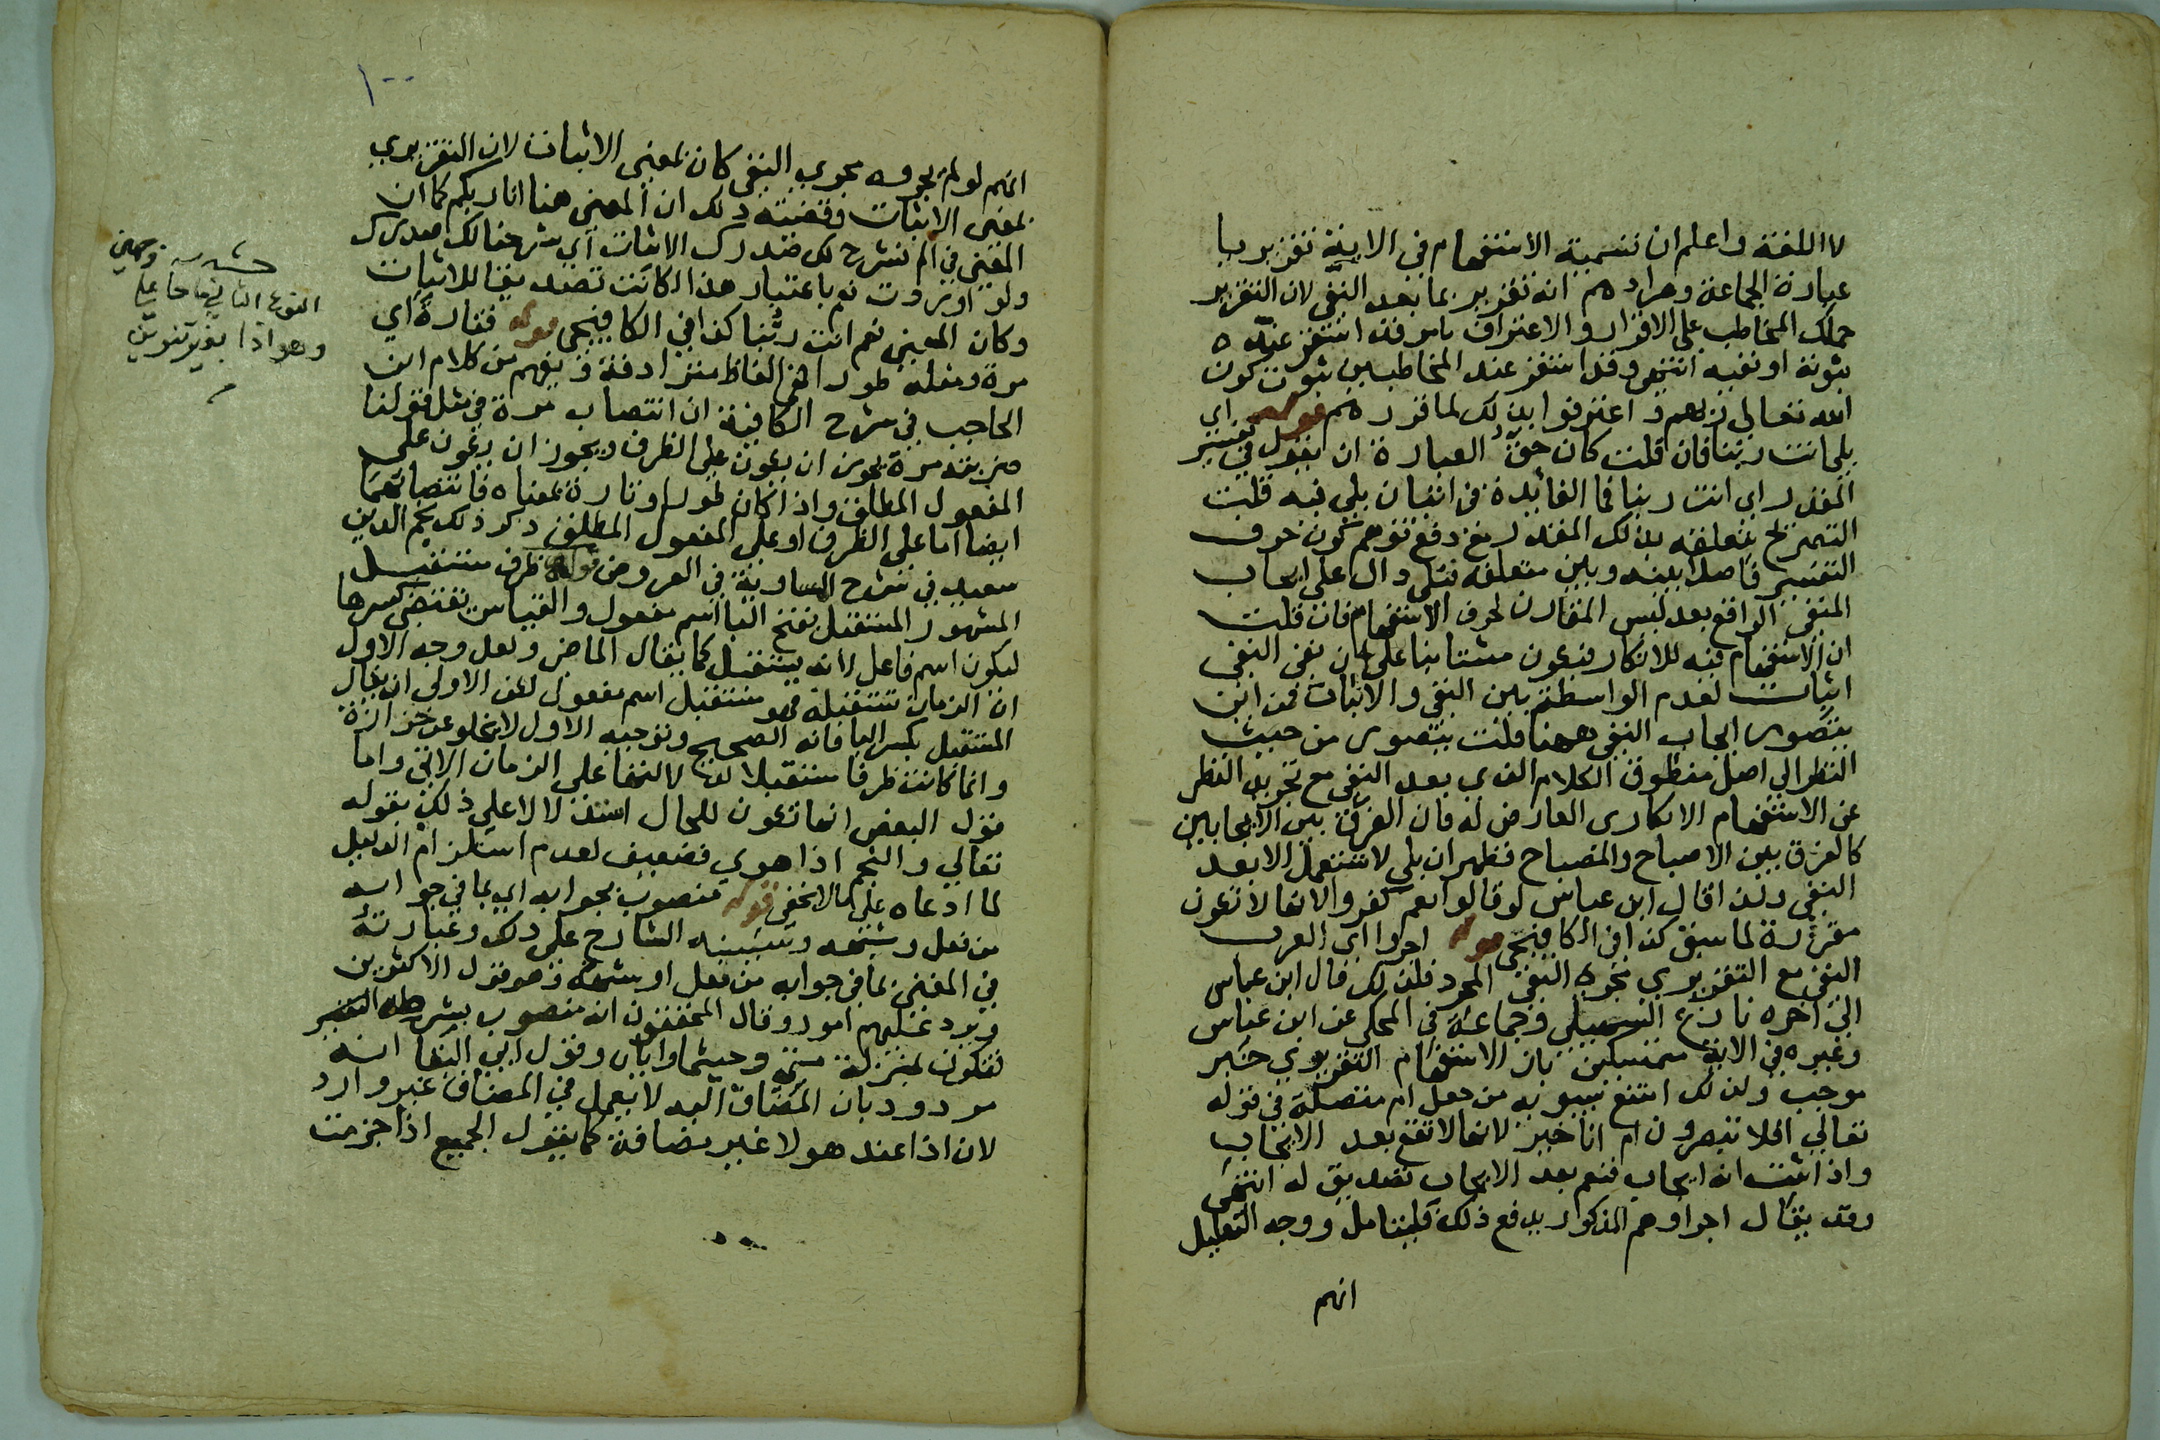 لا اللغة واعلم ان تسمية الاستفهام في الاية تقرير يا
عبارة الجماعة ومرادهم انه تقرير بما بعد النفي لان التقرير
حملك المخاطب على الاقرار والاعتراف بامر قد استقر عنده
ثبوته او نفيه انتهى وقد استقر عند المخاطبين ثبوت كون
الله تعالى ربهم واعترفوا بذلك لما قررهم قوله اي
بلى انت ربنا فان قلت كان حق العبارة ان يقول في تفسير
المقدر اي انت ربنا فما الفائدة في اتيان بلى فيه قلت
التصريح بتعلقه بذلك المقدر مع دفع توهم كون حرف
التفسير فاصلا بينه وبين متعلقه فبلى دال على ايجاب
المنفي الواقع بعد ليس المقارن لحرف الاستفهام فان قلت
ان الاستفهام فيه للانكار فيكون مثبتا بناء على ان نفي النفي
اثبات لعدم الواسطة بين النفي والاثبات فمن اين
يتصور ايجاب النفي ههنا قلت يتصور من حيث
النظر الى اصل منطوق الكلام الذي بعد النفي مع تجريد النظر
عن الاستفهام الانكاري العارض له فان الفرق بين الايجابين
كالفرق بين الاصباح والمصباح فظهر ان بلى لا تستعمل الا بعد
النفي ولذا قال ابن عباس لو قالوا نعم كفروا لانها لا تكون
مقررة لما سبق كذا في الكافيجي قوله اجروا اي العرب
النفي مع التقريري مجرى النفي المجرد فلذلك قال ابن عباس
الى آخره نازع السهيلي وجماعة في المحكي عن ابن عباس
وغيره في الاية متمسكين بان الاستفهام التقريري خبر
موجب ولذلك امتنع سيبويه من جعل ام متصلة في قوله
تعالى افلا تبصرون ام انا خير لانها لا تقع بعد الايجاب
واذا ثبت انه ايجاب فنعم بعد الايجاب تصديق له انتهى
وقد يقال اجراوهم المذكور يدفع ذلك فليتامل ووجه التعليل
انهم
١٠٠
انهم لو لم يجروه مجرى النفي كان بمعنى الاثبات لان التقريري
بمعنى الاثبات وقضيته ذلك ان المعنى هنا انا ربكم كما ان
المعنى في الم نشرح لك صدرك الاثبات اي شرحنا لك صدرك
ولو اوردت نعم باعتبار هذا لكانت تصديقا للاثبات
وكان المعنى نعم انت ربنا كذا في الكافيجي قوله فتارة اي
مرة ومثله طورا فهي الفاظ مترادفة ويفهم من كلام ابن
الحاجب في شرح الكافية ان انتصاب مرة في مثل قولنا
ضربته مرة يجوز ان يكون على الظرف ويجوز ان يكون على
المفعول المطلق واذا كان طورا وتارة بمعناه فانتصابهما
ايضا اما على الظرف او على المفعول المطلق ذكر ذلك نجم الدين
سعيد في شرح الساوية في العروض قوله ظرف مستقبل
المشهور المستقبل بفتح البا اسم مفعول والقياس يقتضي كسرها
ليكون اسم فاعل لانه يستقبل كما يقال الماضي ولعل وجه الاول
ان الزمان تستقبله فهو مستقبل اسم مفعول لكن الاولى ان يقال
المستقبل بكسر البا فانه الصحيح وتوجيه الاول لا يخلو عن حزازة
وانما كانت ظرفا مستقبلا لدلالتها على الزمان الاتي واما
قول البعض انها تكون للحال استدلالا على ذلك بقوله
تعالى والنجم اذا هوى فضعيف لعدم استلزام الدليل
لما ادعاه على ما لا يخفى قوله منصوب بجوابه اي بما في جوابه
من فعل وشبهه وسينبه الشارح على ذلك وعبارته
في المغني بما في جوابه من فعل او شبهه وهو قول الاكثرين
ويرد عليهم امور وقال المحققون انه منصوب بشرطه
فتكون بمنزلة متى وحيثما وايان وقول ابي البقا انه
مردود بان المضاف اليه لا يعمل في المضاف غير وارد
لان اذا عند هولا غير مضافة كما يقول الجميع اذا جزمت
النوع الثاني ما جا على
وهو اذا